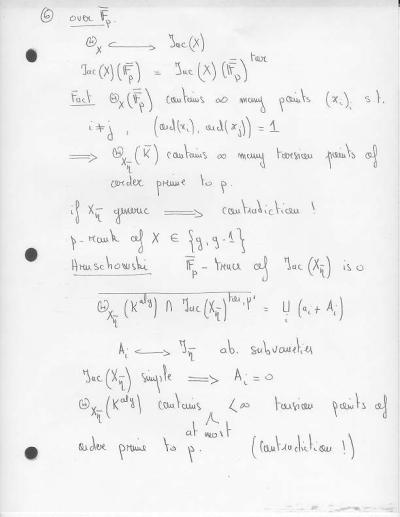 ⑥ over F̄_p.
Θ_X ↪ Jac(X)
Jac(X)(F̄_p) = Jac(X)(F̄_p)^tor
Fact Θ_X(F̄_p) contains ∞ many points (x_i)_i s.t.
i≠j, (ord(x_i), ord(x_j)) = 1
⟹ Θ_{X_η̄}(K̄) contains ∞ many torsion points of
order prime to p.
if X_η̄ generic ⟹ contradiction !
p-rank of X ∈ {g, g-1}
Hruschowski F̄_p - trace of Jac(X_η̄) is 0
Θ_{X_η̄}(K^alg) ∩ Jac(X_η̄)^{tor, p'} = ⋃_i (a_i + A_i)
A_i ↪ J_η̄ ab. subvarieties
Jac(X_η̄) simple ⟹ A_i = 0
Θ_{X_η̄}(K^alg) contains < ∞ torsion points of
at most
order prime to p. (contradiction !)